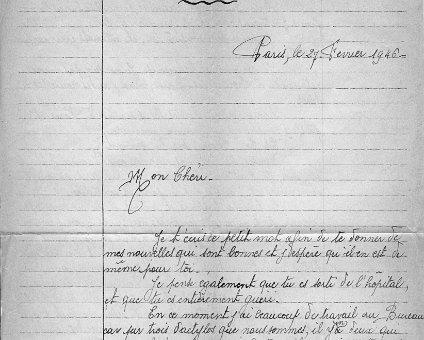 Paris, le 27 Février 1946 -
Mon Chéri -
Je t'écris ce petit mot afin de te donner de
mes nouvelles qui sont bonnes et j'espère qu'il en est de
même pour toi.
Je pense également que tu es sorti de l'hôpital,
et que tu es entièrement guéri.
En ce moment j'ai beaucoup de travail au Bureau
car sur trois dactylos que nous sommes, il y en a deux qui